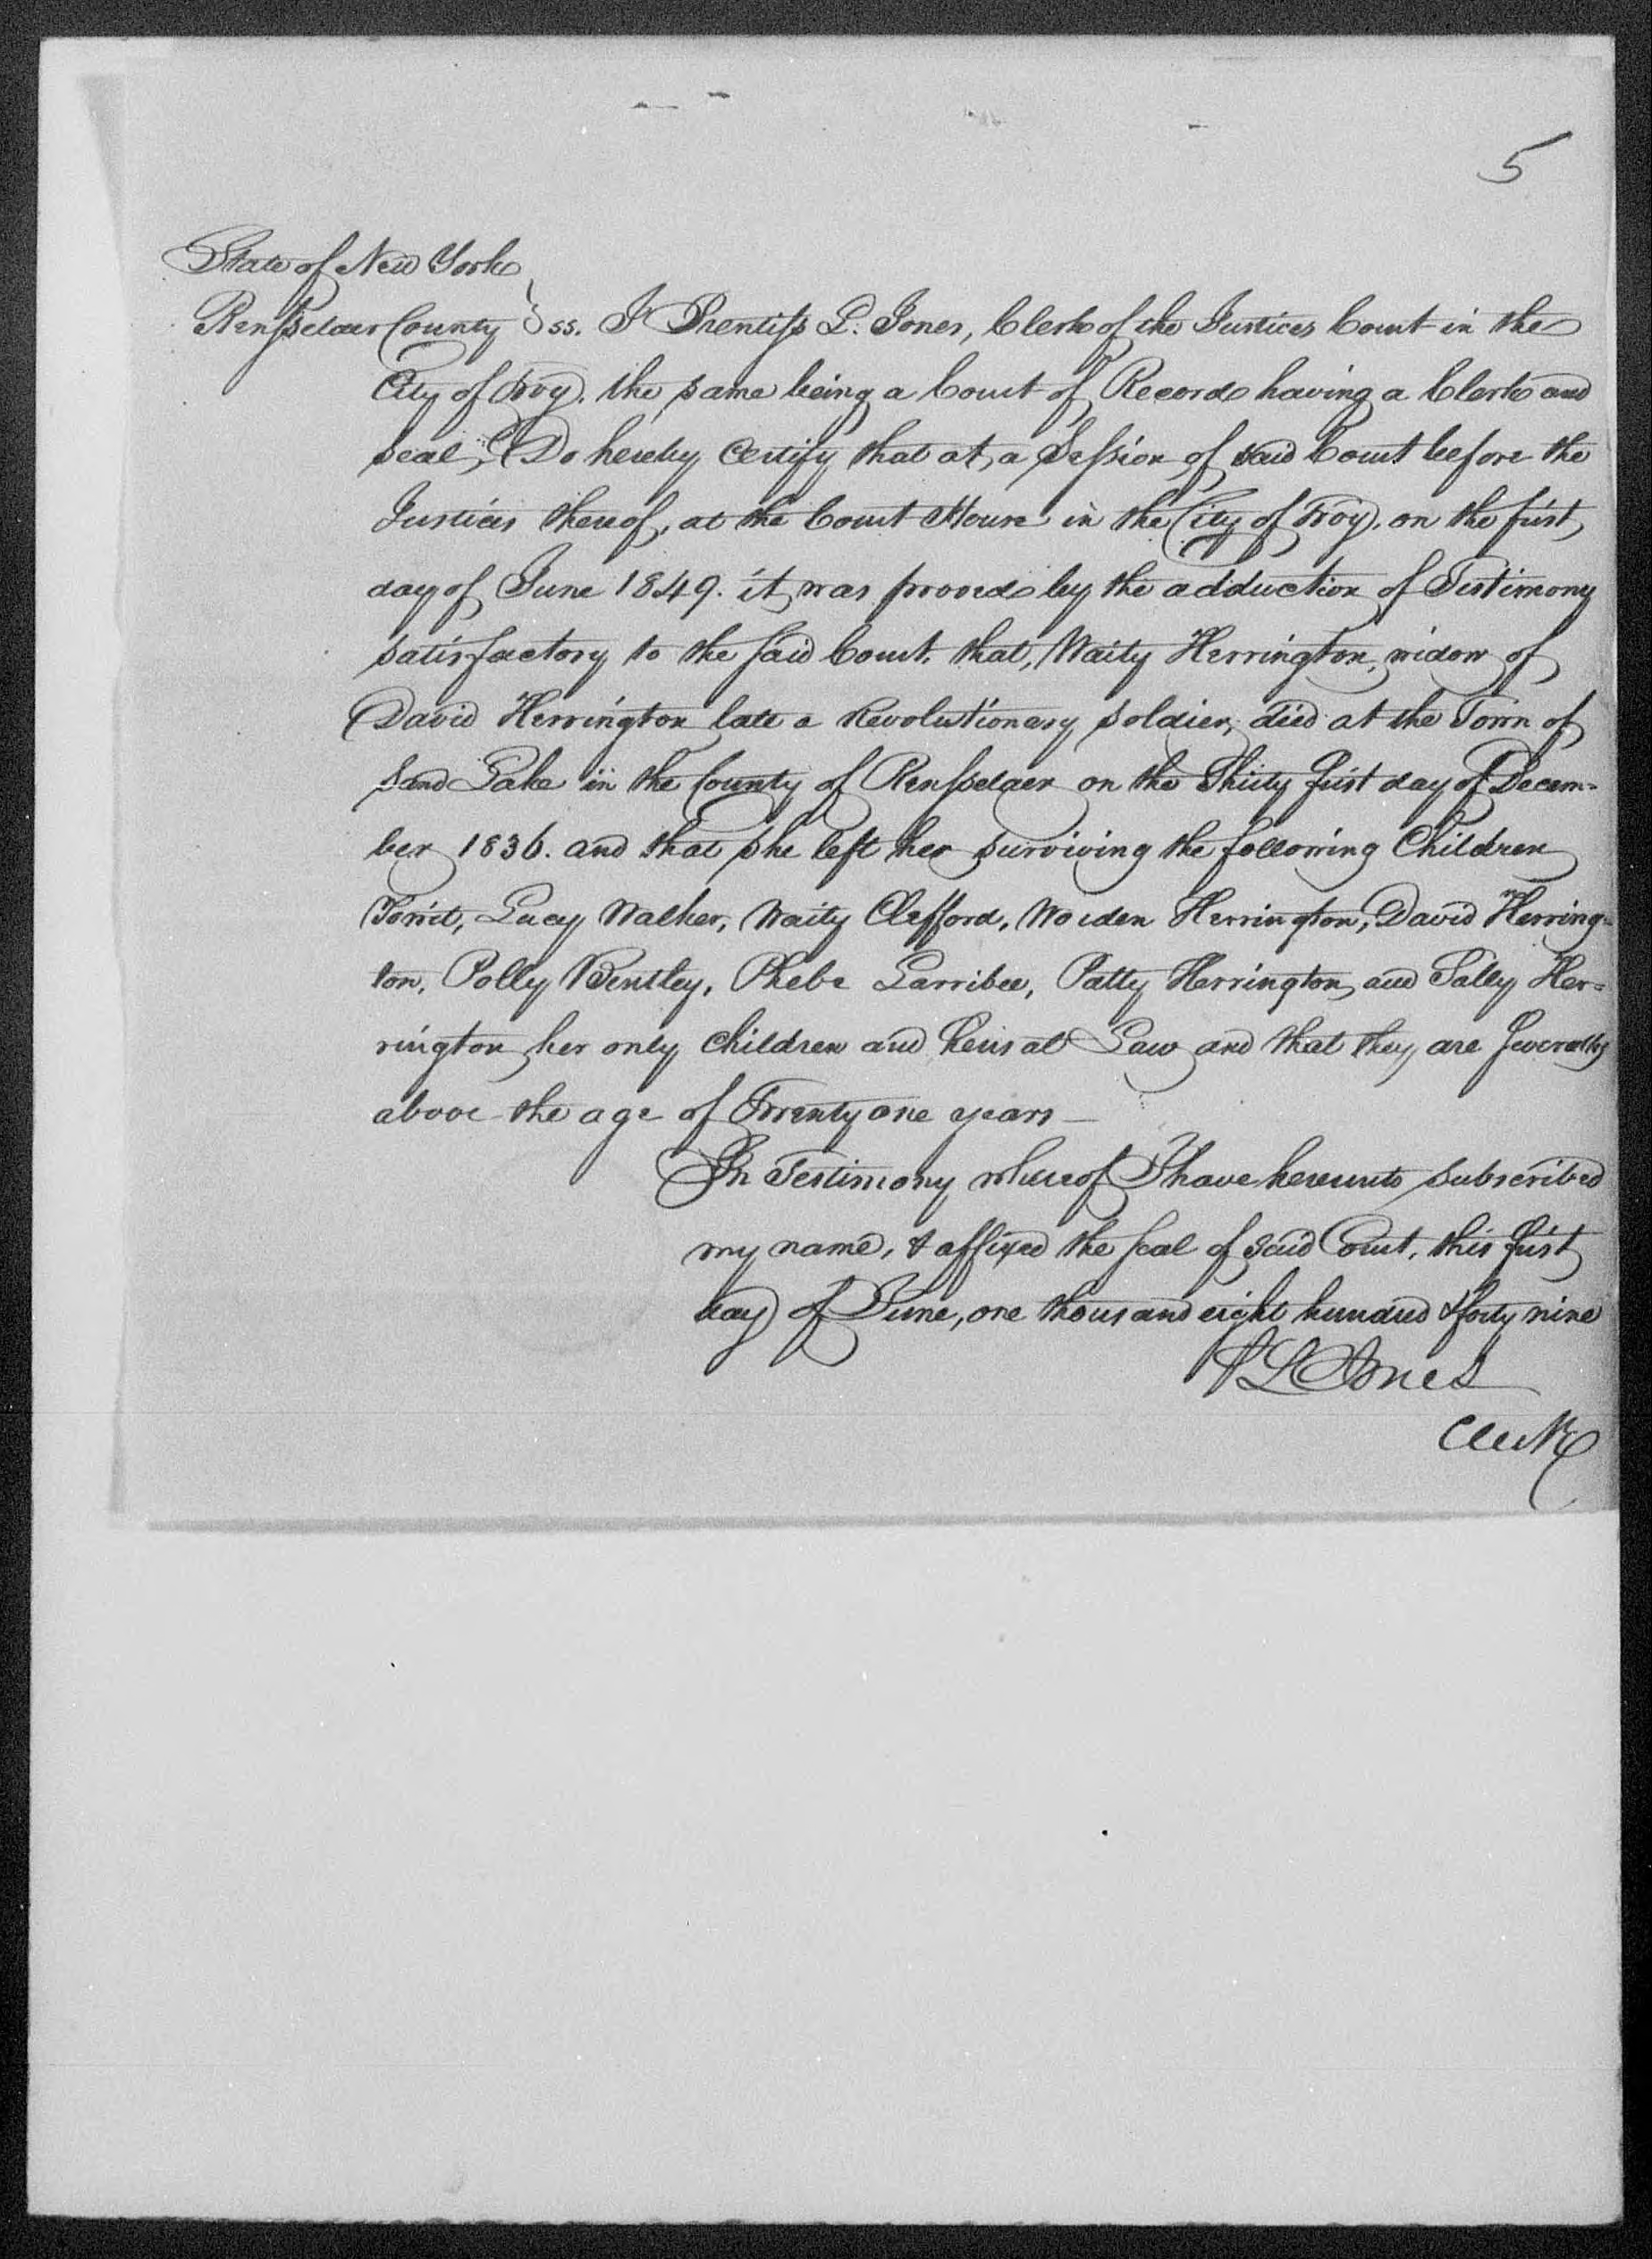 5
State of New York
Rensselaer County } ss. I Prentiss L. Jones, Clerk of the Justices Court in the
City of Troy. the same being a Court of Record having a Clerk and
seal, Do hereby Certify that at a Session of said Court before the
Justices thereof, at the Court House in the City of Troy, on the first
day of June 1849. it was proved by the adduction of Testimony
satisfactory to the said Court. that, Waity Herrington, widow of
David Herrington late a Revolutionary soldier, died at the Town of
Sand Lake in the County of Rensselaer on the Thirty first day of Decem-
ber 1836. and that she left her surviving the following Children
Towit, Lucy Walker, Waity Clifford, Worden Herrington, David Herring-
ton, Polly Bentley, Phebe Larribee, Patty Herrington, and Sally Her-
rington her only Children and heirs at Law and that they are severally
above the age of Twenty one years —
In Testimony whereof I have hereunto subscribed
my name, & affixed the seal of said Court, this first
day of June, one thousand eight hundred & forty nine
P L Jones
Clerk